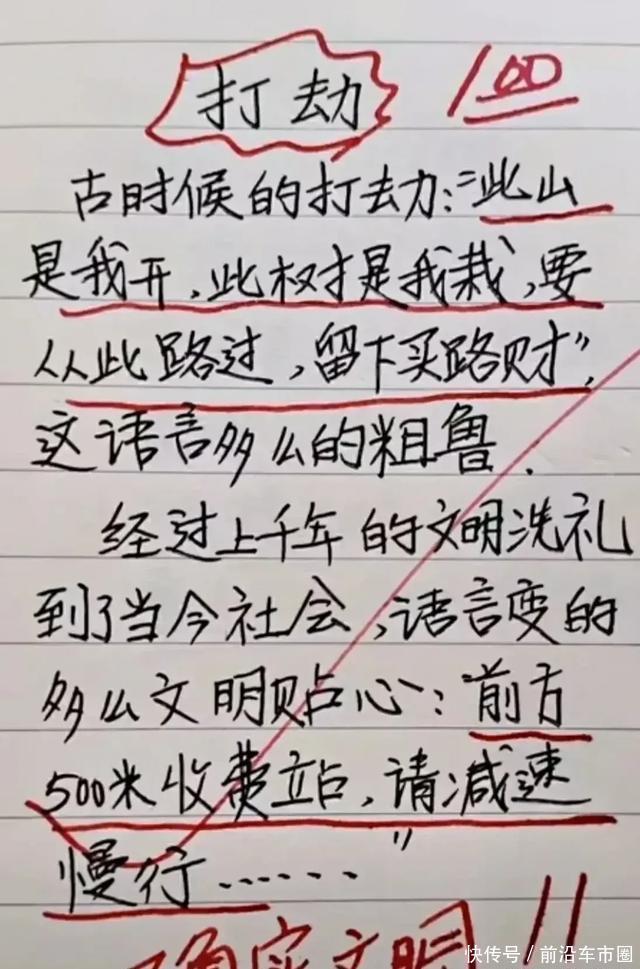 打劫
100
古时候的打劫:"此山
是我开,此树是我栽,要
从此路过,留下买路财",
这语言多么的粗鲁.
经过上千年的文明洗礼
到了当今社会,语言变的
多么文明贴心:"前方
500米收费站,请减速
慢行......"
确实文明!!
快传号/前沿车市圈